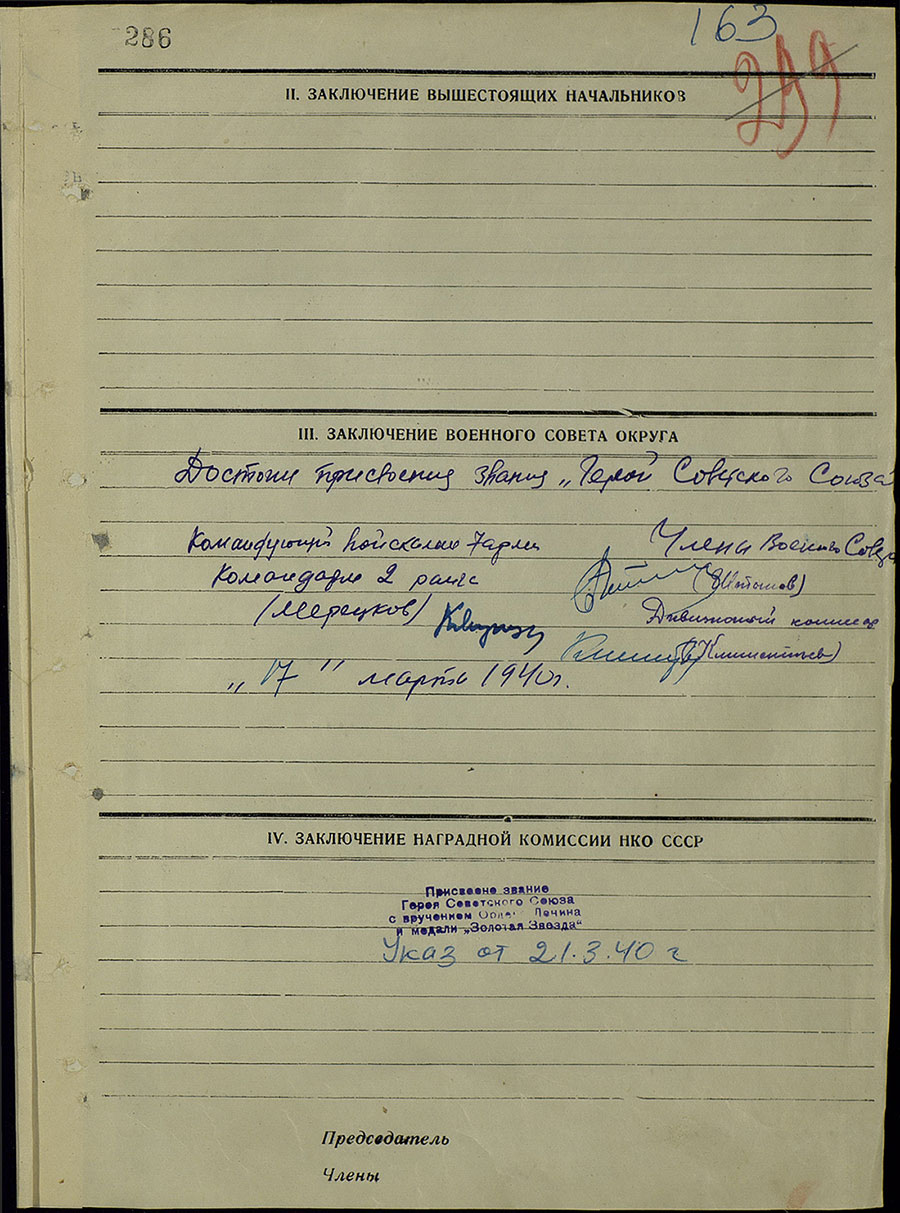 286
163
299
II. ЗАКЛЮЧЕНИЕ ВЫШЕСТОЯЩИХ НАЧАЛЬНИКОВ
III. ЗАКЛЮЧЕНИЕ ВОЕННОГО СОВЕТА ОКРУГА
Достоин присвоения звания „Герой Советского Союза
Командующий войсками 7 армии
Члены Военного Совета
Командарм 2 ранга
(Мерецков)
Дивизионный комиссар
„17" марта 1940 г.
IV. ЗАКЛЮЧЕНИЕ НАГРАДНОЙ КОМИССИИ НКО СССР
Присвоено звание
Героя Советского Союза
с вручением Ордена Ленина
и медали „Золотая Звезда"
Указ от 21.3.40 г
Председатель
Члены